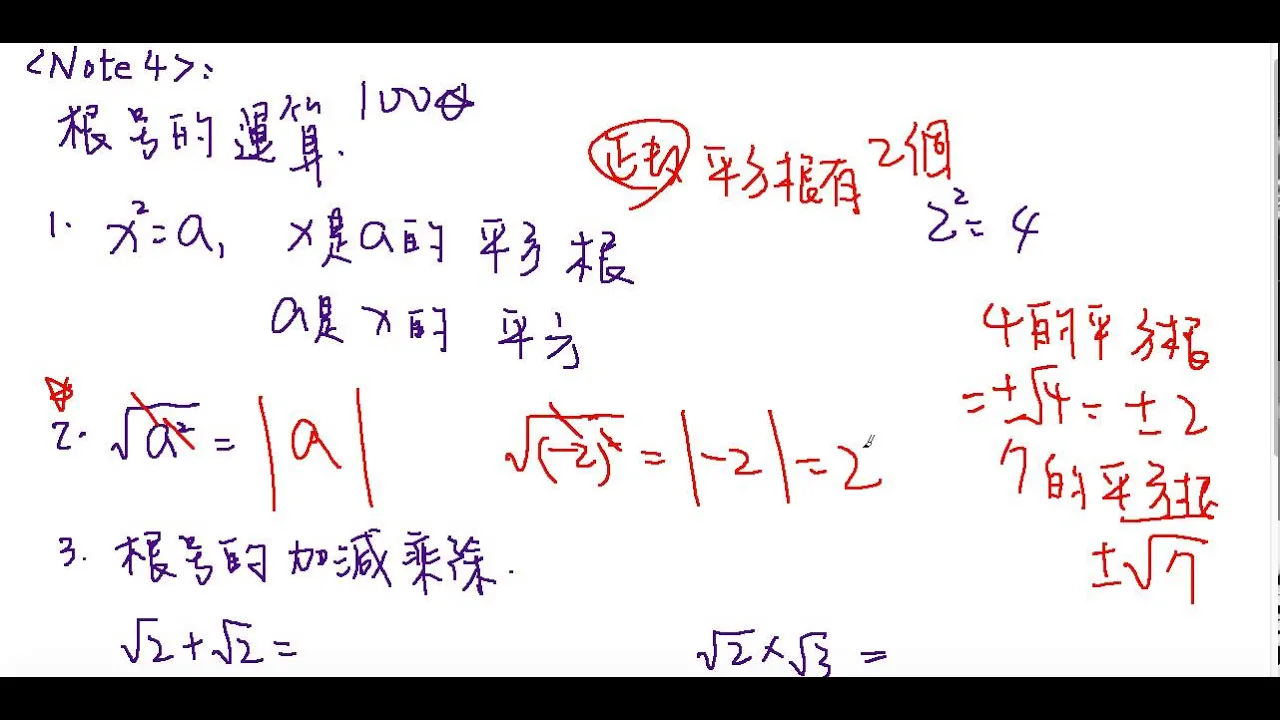 <Note 4>:
根号的運算. 100
正数 平方根有2個
2²=4
1. x²=a, x是a的平方根
a是x的平方
4的平方根
=±√4=±2
2. √a² = |a|
√(-2)² = |-2| = 2
7的平方根
±√7
3. 根号的加減乘除.
√2+√2=
√2×√3 =